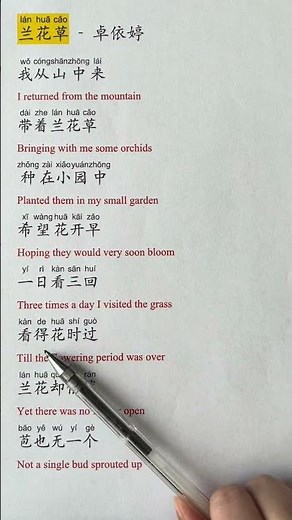 lán huā cǎo
兰花草 - 卓依婷
wǒ cóngshānzhōng lái
我从山中来
I returned from the mountain
dài zhe lán huā cǎo
带着兰花草
Bringing with me some orchids
zhǒng zài xiǎoyuánzhōng
种在小园中
Planted them in my small garden
xī wàng huā kāi zǎo
希望花开早
Hoping they would very soon bloom
yí rì kàn sān huí
一日看三回
Three times a day I visited the grass
kàn de huā shí guò
看得花时过
Till the flowering period was over
lán huā
兰花却
Yet there was no open
bāo yě wú yí gè
苞也无一个
Not a single bud sprouted up